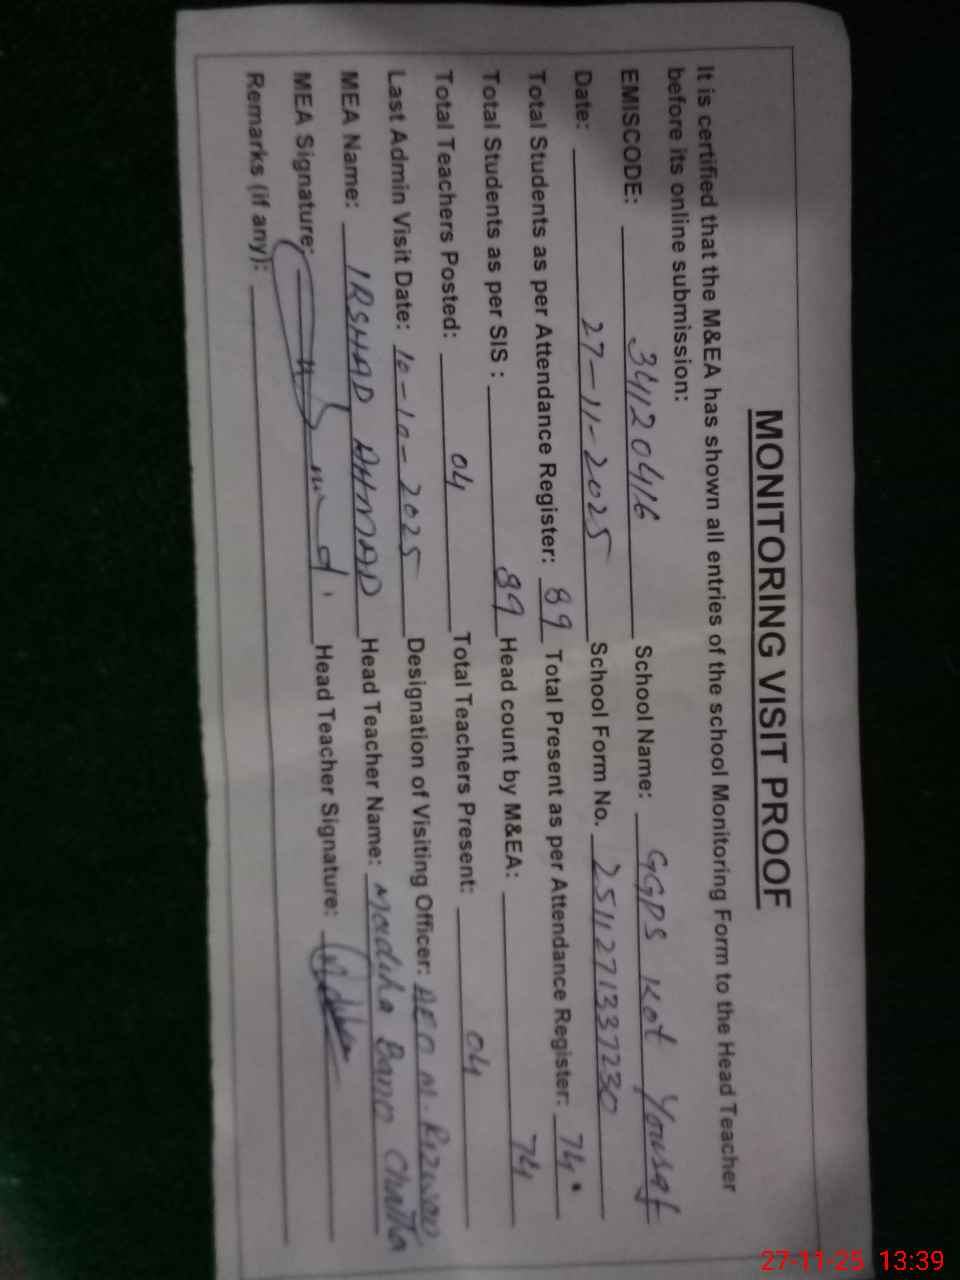 MONITORING VISIT PROOF
It is certified that the M&EA has shown all entries of the school Monitoring Form to the Head Teacher
before its online submission:
EMISCODE: 34120416 School Name: GGPS Kot Yousaf
Date: 27-11-2025 School Form No. 251127133723​0
Total Students as per Attendance Register: 89 Total Present as per Attendance Register: 74
Total Students as per SIS : 89 Head count by M&EA: 74
Total Teachers Posted: 04 Total Teachers Present: 04
Last Admin Visit Date: 10-10-2025 Designation of Visiting Officer: AEO M. Rizwan
MEA Name: IRSHAD AHMAD Head Teacher Name: Madiha Bano Chattha
MEA Signature: Head Teacher Signature:
Remarks (if any):
27-11-25 13:39